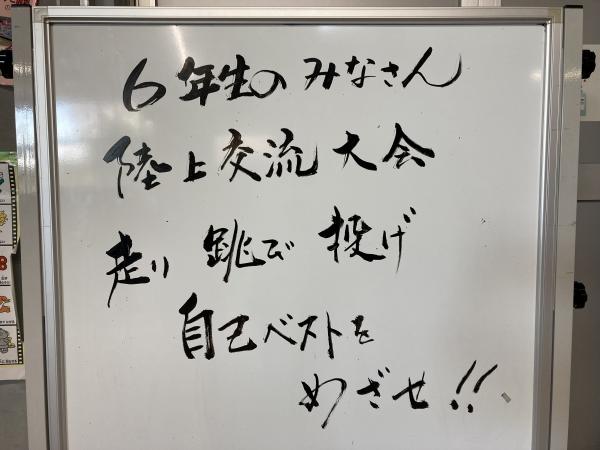 6年生のみなさん
陸上交流大会
走り 跳び 投げ
自己ベストを
めざせ!!